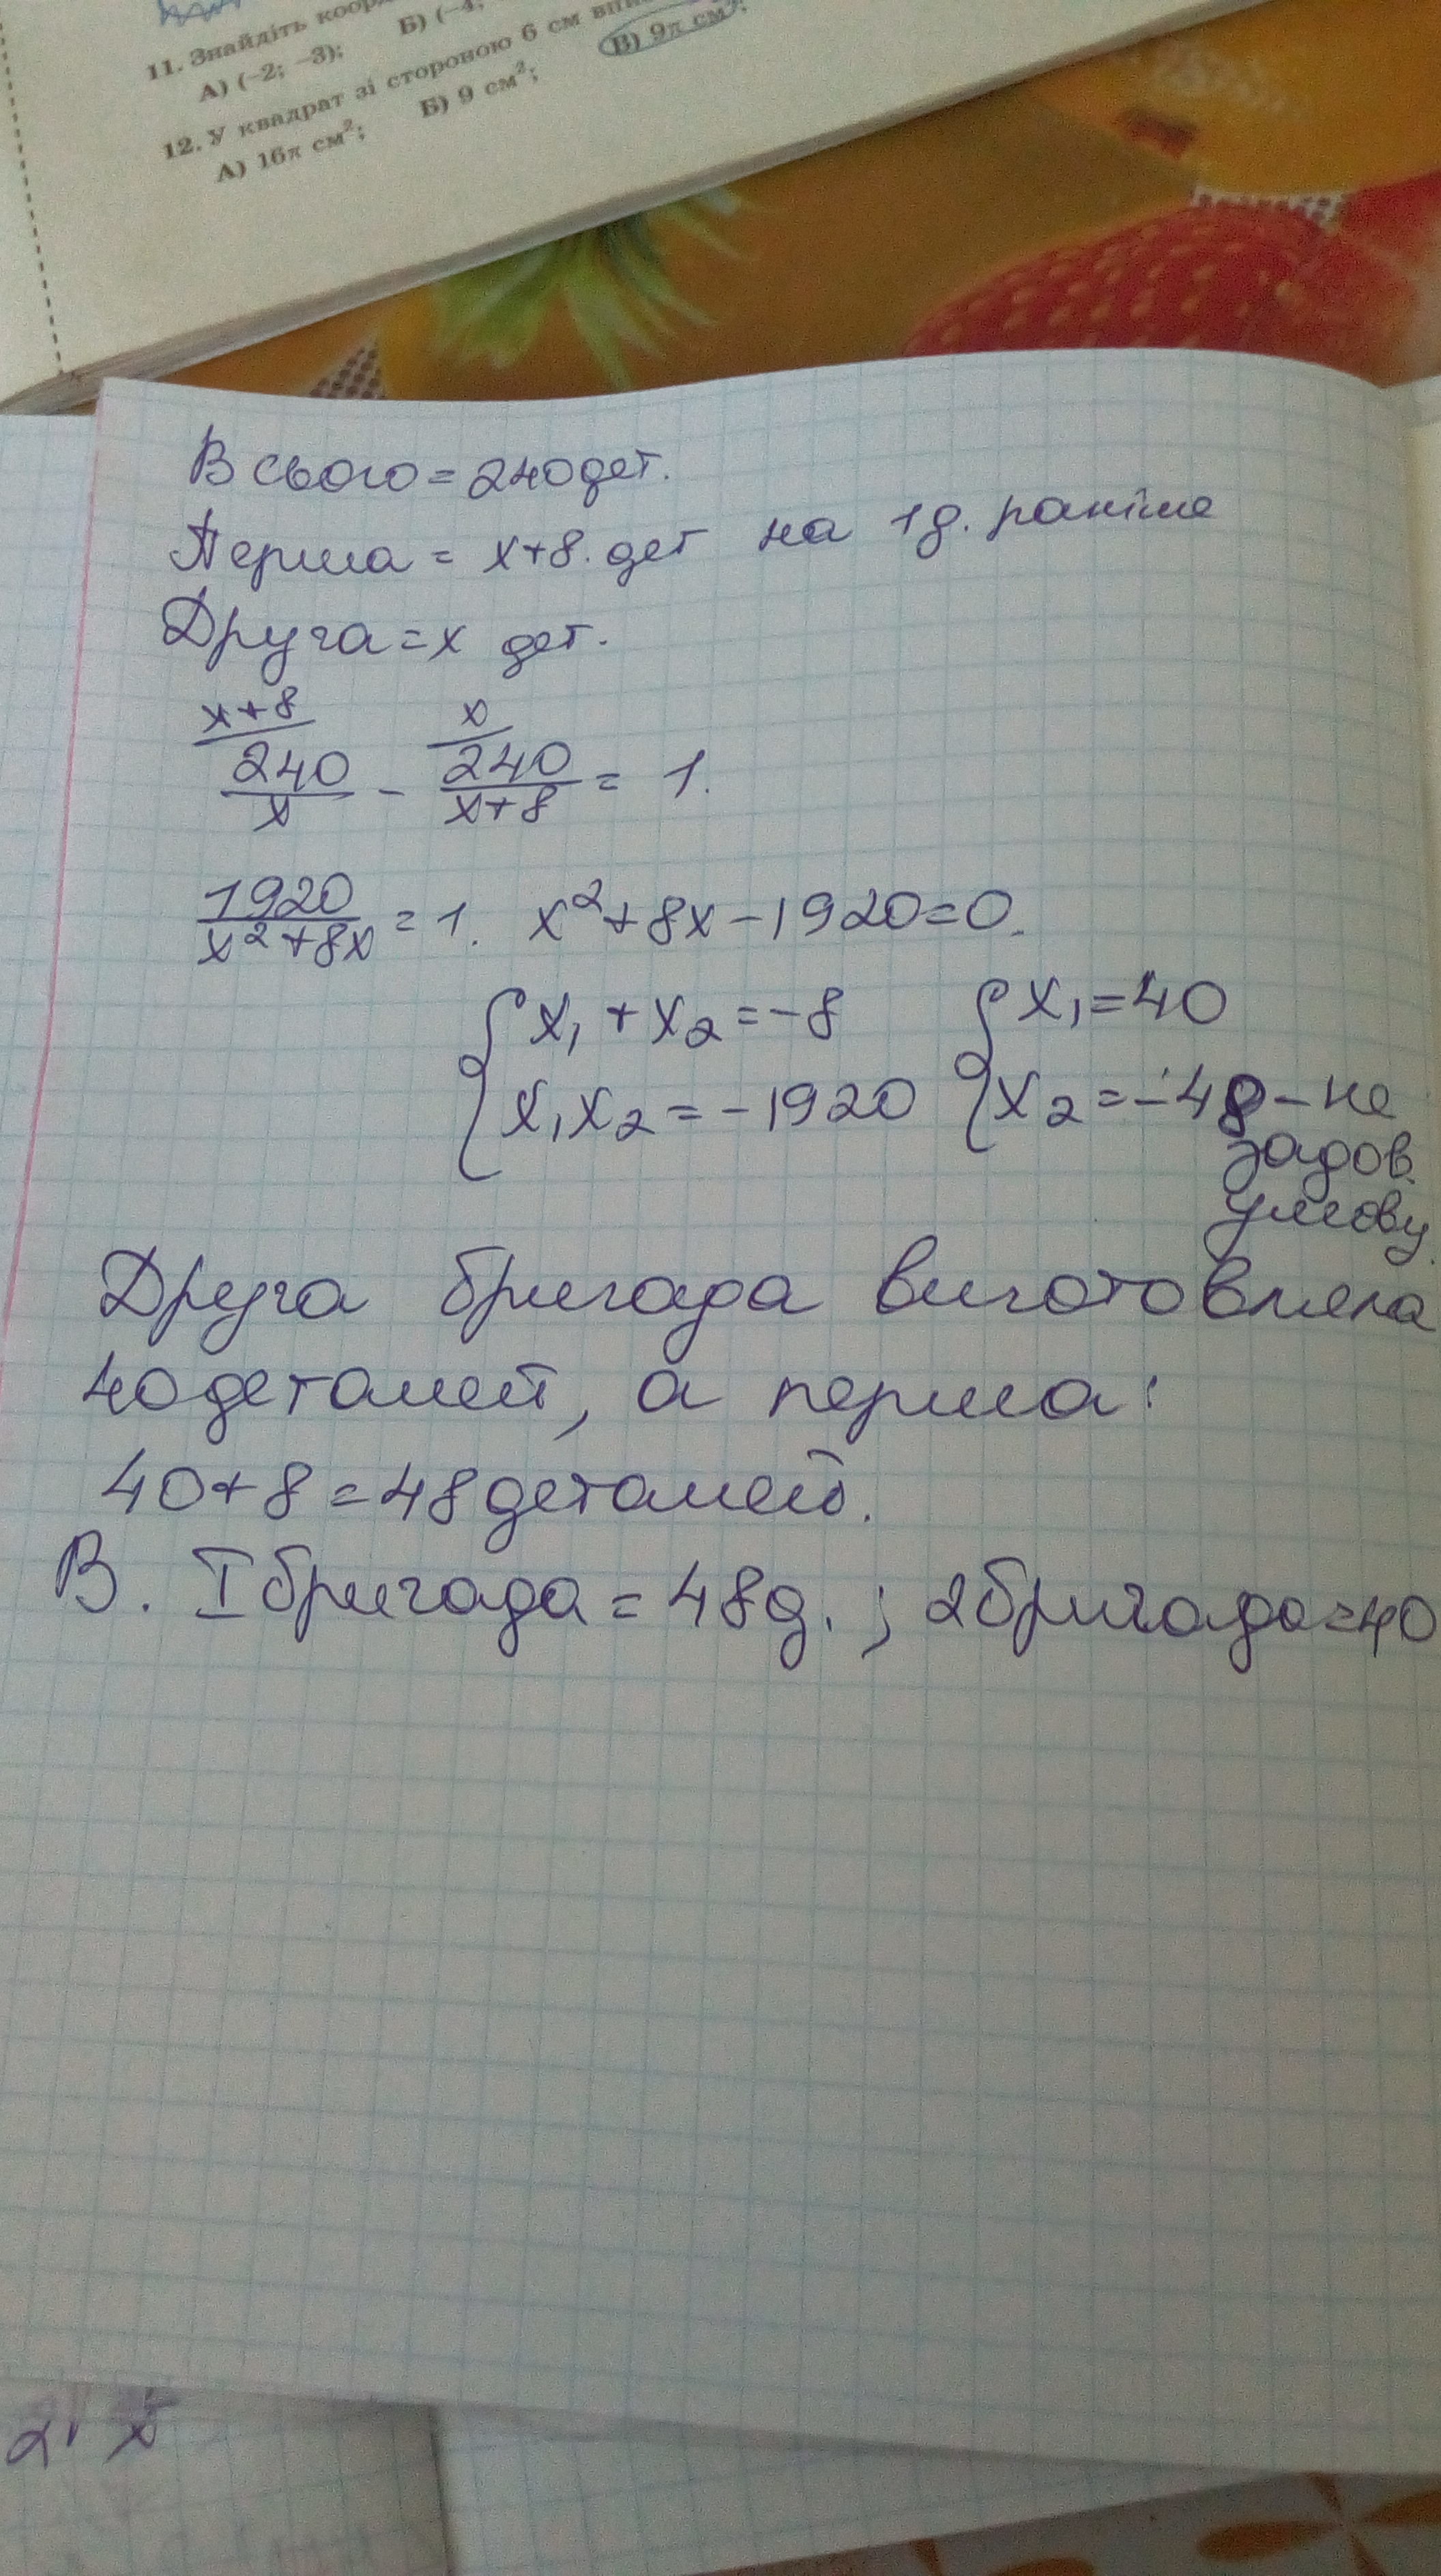 11. Знайдіть коор
А) (–2; –3); Б) (–4;
12. У квадрат зі стороною 6 см впи
А) 16π см²; Б) 9 см²; В) 9π см²;
Всього = 240 дет.
Перша = x+8. дет на 1 д. раніше
Друга = x дет.
x+8 x
240/x - 240/x+8 = 1.
1920/x²+8x = 1. x²+8x-1920=0.
{ x₁ + x₂ = -8 { x₁ = 40
{ x₁x₂ = -1920 { x₂ = -48 - не
задов.
умову.
Друга бригада виготовляла
40 деталей, а перша:
40+8=48 деталей.
В. I бригада = 48 д. ; 2 бригада = 40